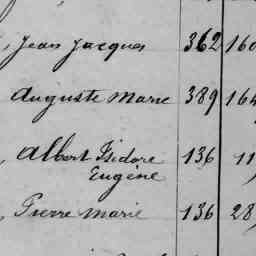 , Jean Jacques 362 160
Auguste Marie 389 164
, Albert Isidore 136 11
Eugène
, Pierre Marie 136 28